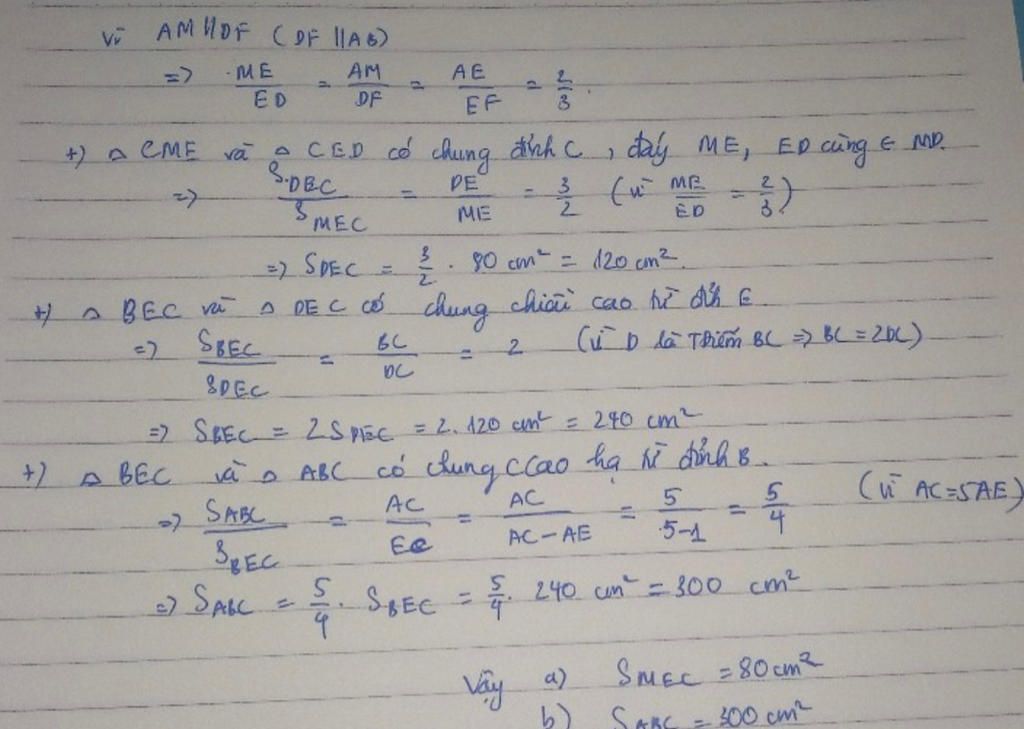 Vì AM // DF (DF // AB)
=> ME/ED = AM/DF = AE/EF = 2/3.
+) △ CME và △ CED có chung đỉnh C, đáy ME, ED cùng ∈ MD.
=> S DEC / S MEC = DE/ME = 3/2 (vì ME/ED = 2/3)
=> S DEC = 3/2 . 80 cm² = 120 cm².
+) △ BEC và △ DEC có chung chiều cao từ đỉnh E.
=> S BEC / S DEC = BC/DC = 2 (vì D là Tđiểm BC => BC = 2DC)
=> S BEC = 2S DEC = 2. 120 cm² = 240 cm²
+) △ BEC và △ ABC có chung CCao hạ từ đỉnh B.
=> S ABC / S BEC = AC/EC = AC/AC-AE = 5/5-1 = 5/4 (vì AC=5AE)
=> S ABC = 5/4 . S BEC = 5/4 . 240 cm² = 300 cm²
Vậy a) S MEC = 80cm²
b) S ABC = 300 cm²